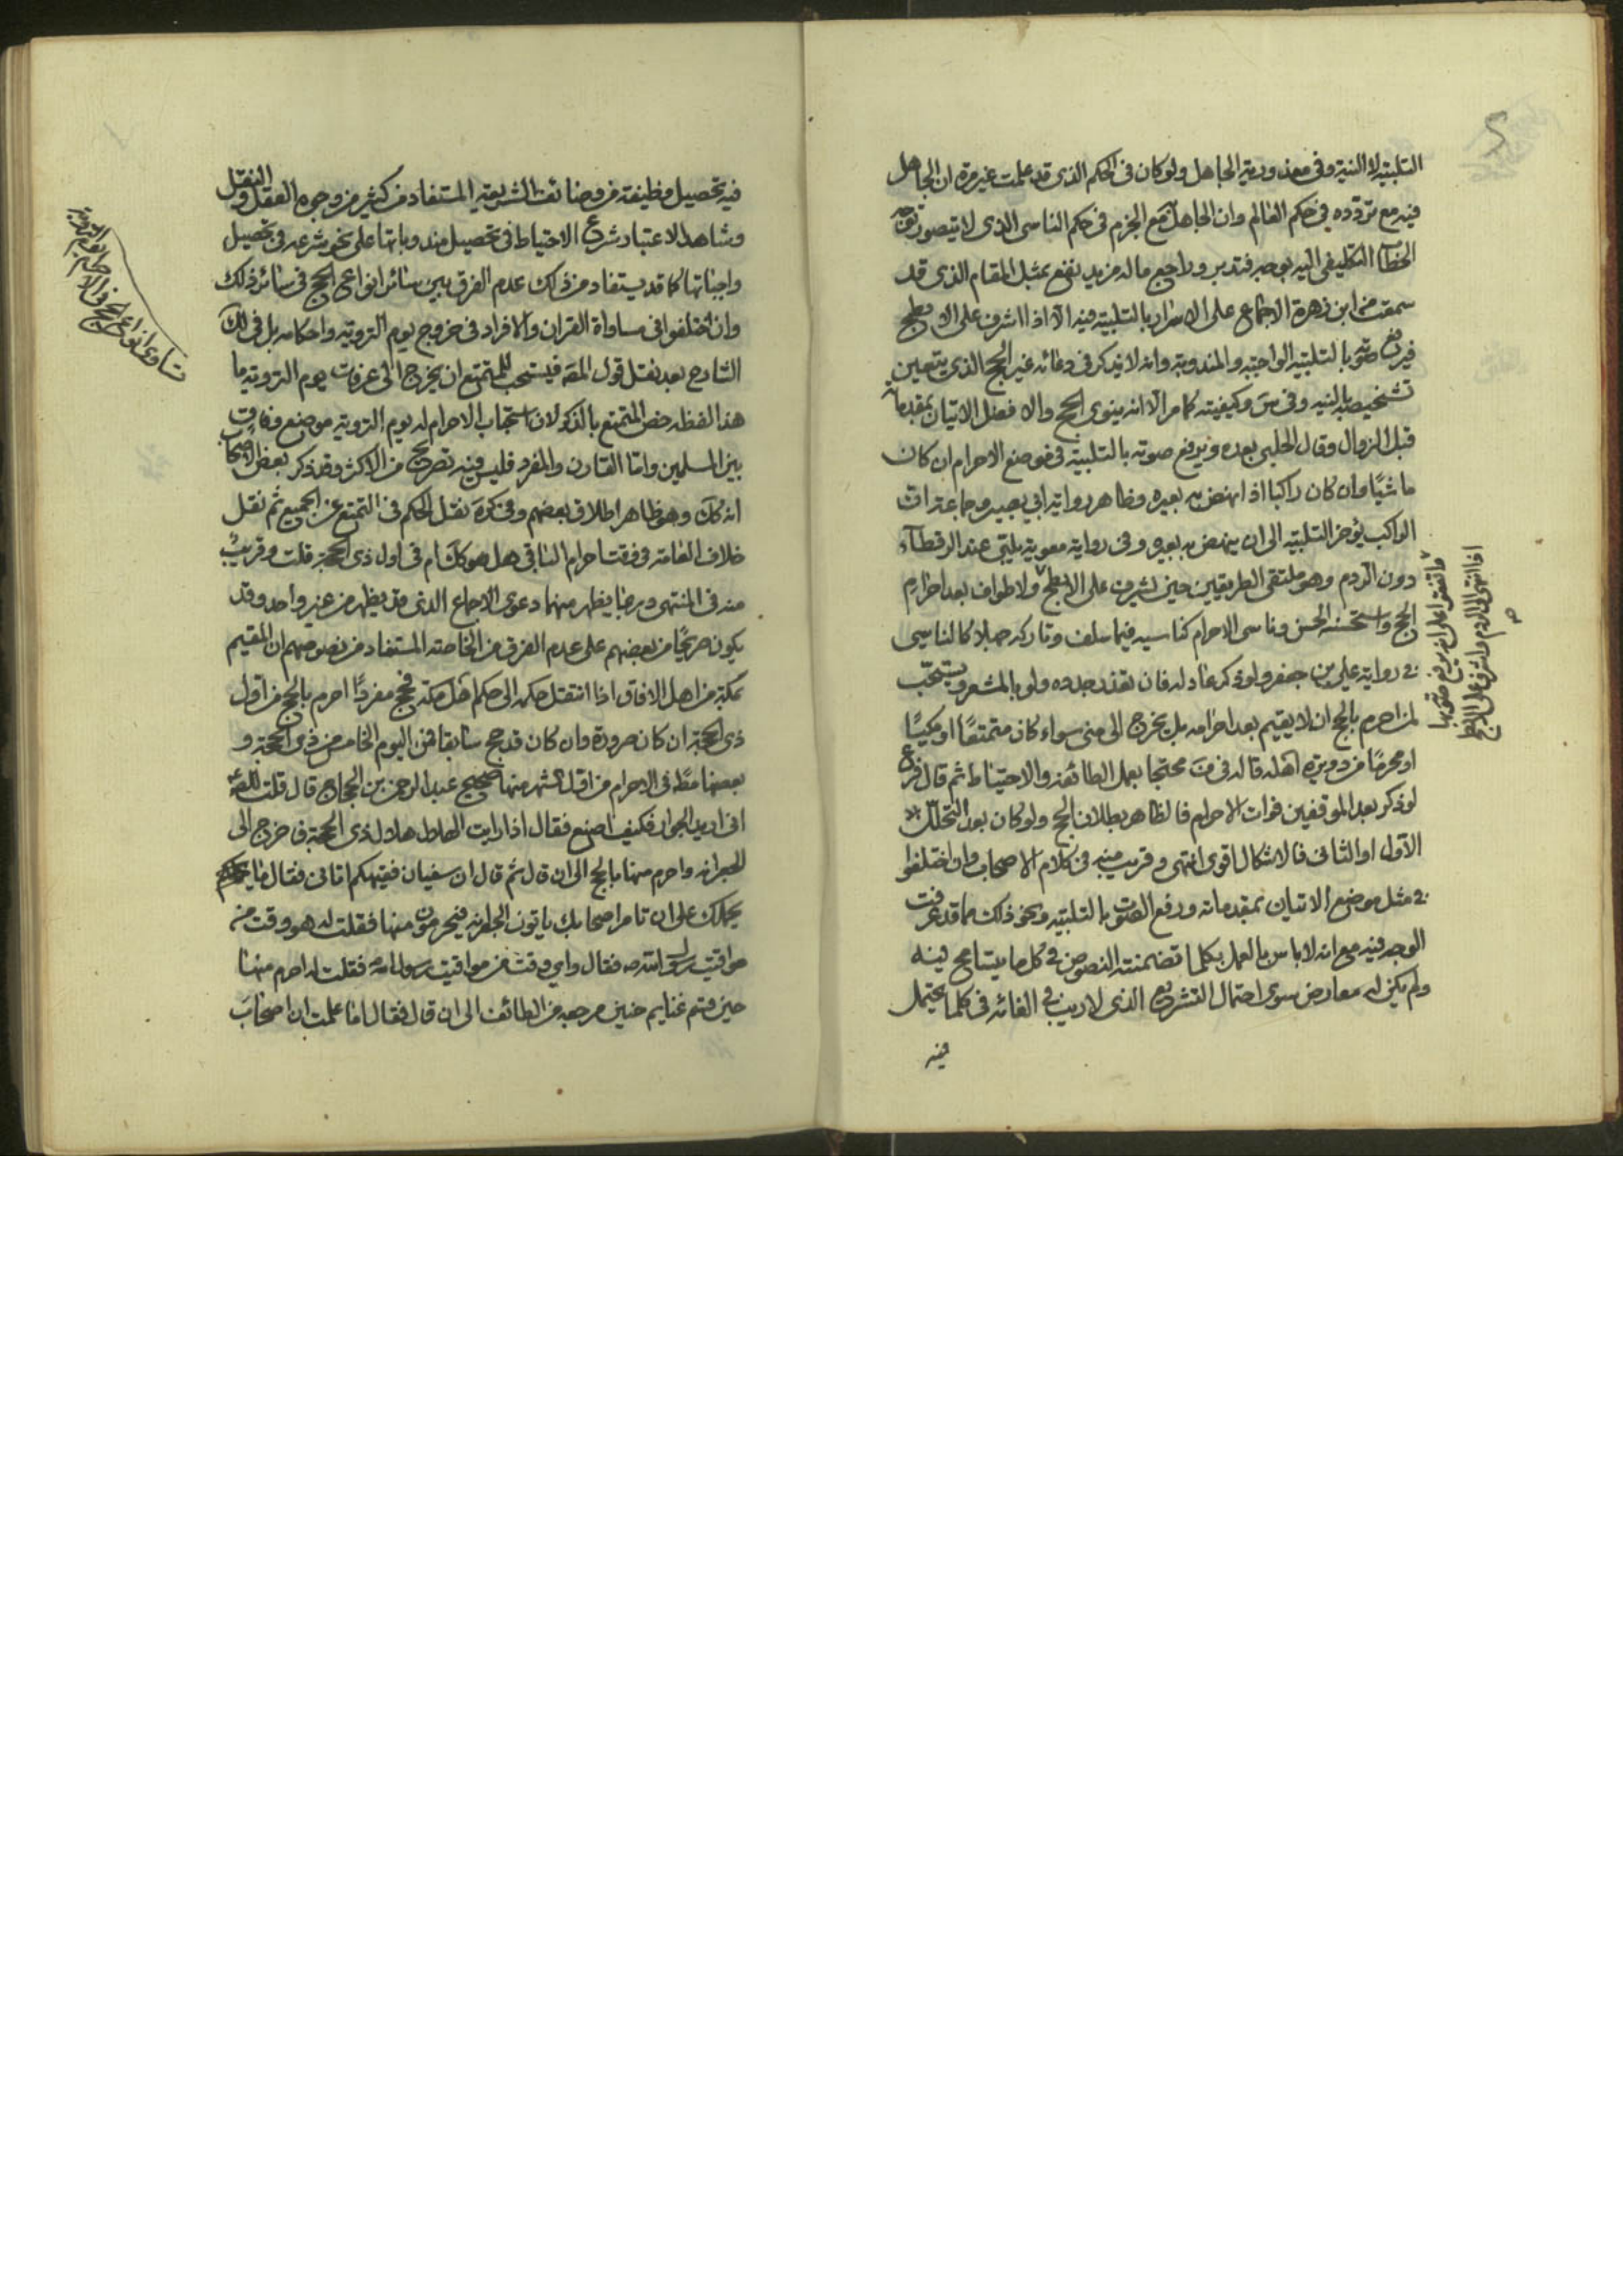 التلبية لا النية وفي معذورية الجاهل ولو كان في الحكم الذي قد علمت غير مرة ان الجاهل
فيه مع تردده في حكم العالم وان الجاهل مع الجزم في حكم الناسي الذي لا يتصور توجه
الخطاب التكليفي اليه بوجه فتدبر وراجع ماله مزيد نفع بمثل المقام الذي قد
سمعت من ابن زهرة الاجماع على الاسرار بالتلبية فيه الا اذا اشرف على الابطح
فيرفع صوته بالتلبية الواجبة والمندوبة وانه لا يذكر في دعائه غير الحج الذي يتعين
تشخيصه بالنية وفي س وكيفيته كما مر الا انه ينوي الحج والافضل الاتيان بمقدماته
قبل الزوال وقال الحلبي بعده ويرفع صوته بالتلبية في موضع الاحرام ان كان
ماشيا وان كان راكبا اذا نهض به بعيره وظاهر رواية ابي بصير وجماعة ان
الراكب يؤخر التلبية الى ان ينهض به بعيره وفي رواية معوية يلبي عند الرقطاء
دون الردم وهو ملتقى الطريقين حين يشرف على الابطح ولا طواف بعد احرام
الحج واستحسنه الحسن وناسي الاحرام كناسيه فيما سلف وتاركه جهلا كالناسي
في رواية علي بن جعفر ولو ذكر عاد له فان تعذر جدده ولو بالمشعر ويستحب
لمن احرم بالحج ان لا يقيم بعد احرامه بل يخرج الى منى سواء كان متمتعا او مكيا
او محرما من دويرة اهله قاله في ف محتجا بعمل الطائفة والاحتياط ثم قال فرع
لو ذكر بعد الموقفين فوات الاحرام فالظاهر بطلان الحج ولو كان بعد التحلل
الاول او الثاني فالاشكال اقوى انتهى وقريب منه في كلام الاصحاب وان اختلفوا
في مثل موضع الاتيان بمقدماته ورفع الصوت بالتلبية ونحو ذلك مما قد عرفت
الوجه فيه مع انه لا باس بالعمل بكلما تضمنته النصوص في كل ما يتسامح فيه
ولم يكن له معارض سوى احتمال التشريع الذي لا ريب في الغائه في كلما يحتمل
فيه
واتفقوا على انه يرفع صوته بها
اذا انتهى الى الردم واشرف على الابطح
صح
فيه تحصيل وظيفة من وظائف الشريعة المستفاد من كثير من وجوه العقل والنقل
وشاهد الاعتبار شرع الاحتياط في تحصيل مندوباتها على نحو شرعه في تحصيل
واجباتها كما قد يستفاد من ذلك عدم الفرق بين سائر انواع الحج في سائر ذلك
وان اختلفوا في مساواة القران والافراد في خروج يوم التروية واحكامه بل في لك
الشارح بعد نقل قول المصه فيستحب للمتمتع ان يخرج الى عرفات يوم التروية ما
هذا لفظه خص المتمتع بالذكر لان استحباب الاحرام له يوم التروية موضع وفاق
بين المسلمين واما القارن والمفرد فليس فيه تصريح من الاكثر وقد ذكر بعض الاصحاب
انه كك وهو ظاهر اطلاق بعضهم وفي كره نقل الحكم في التمتع عن الجميع ثم نقل
خلاف العامة في وقت احرام الباقي هل هو كك ام في اول ذي الحجة قلت وقريب
منه في المنتهى وربما يظهر منهما دعوى الاجماع الذي قد يظهر من غير واحد وقد
يكون صريحا من بعضهم على عدم الفرق من الخاصة المستفاد من نصوصهم ان المقيم
بمكة من اهل الافاق اذا انتقل حكمه الى حكم اهل مكة فحج مفردا احرم بالحج من اول
ذي الحجة ان كان صرورة وان كان قد حج سابقا فمن اليوم الخامس من ذي الحجة و
بعضها مط في الاحرام من اقبل الشهر منها صحيح عبد الرحمن بن الحجاج قال قلت للصه
اني اريد الجوار فكيف اصنع فقال اذا رايت الهلال هلال ذي الحجة فاخرج الى
الجعرانة واحرم منها بالحج الى ان قال ثم قال ان سفيان فقيهكم اتاني فقال ما
يحملك على ان تامر اصحابك ياتون الجعرانة فيحرمون منها فقلت له هو وقت من
مواقيت رسول الله ص فقال واي وقت من مواقيت رسول الله فقلت له احرم منها
حين قسم غنايم حنين مرجعه من الطائف الى ان قال فقال اما علمت ان اصحاب